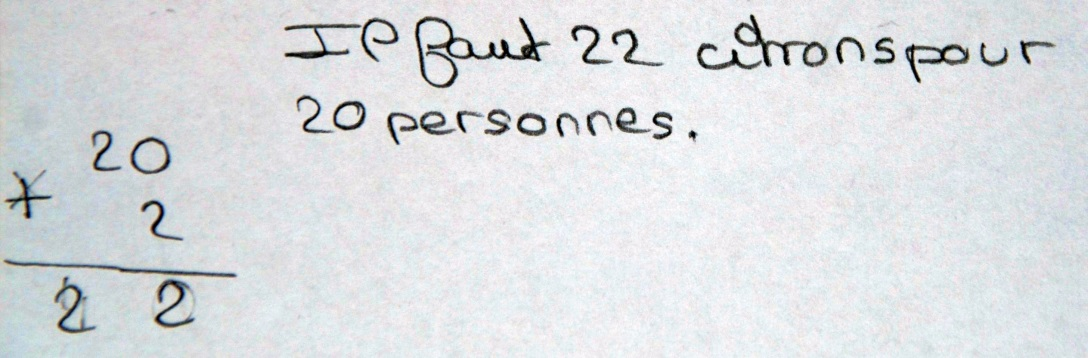 Il faut 22 citrons pour
20 personnes.
20
+ 2
22